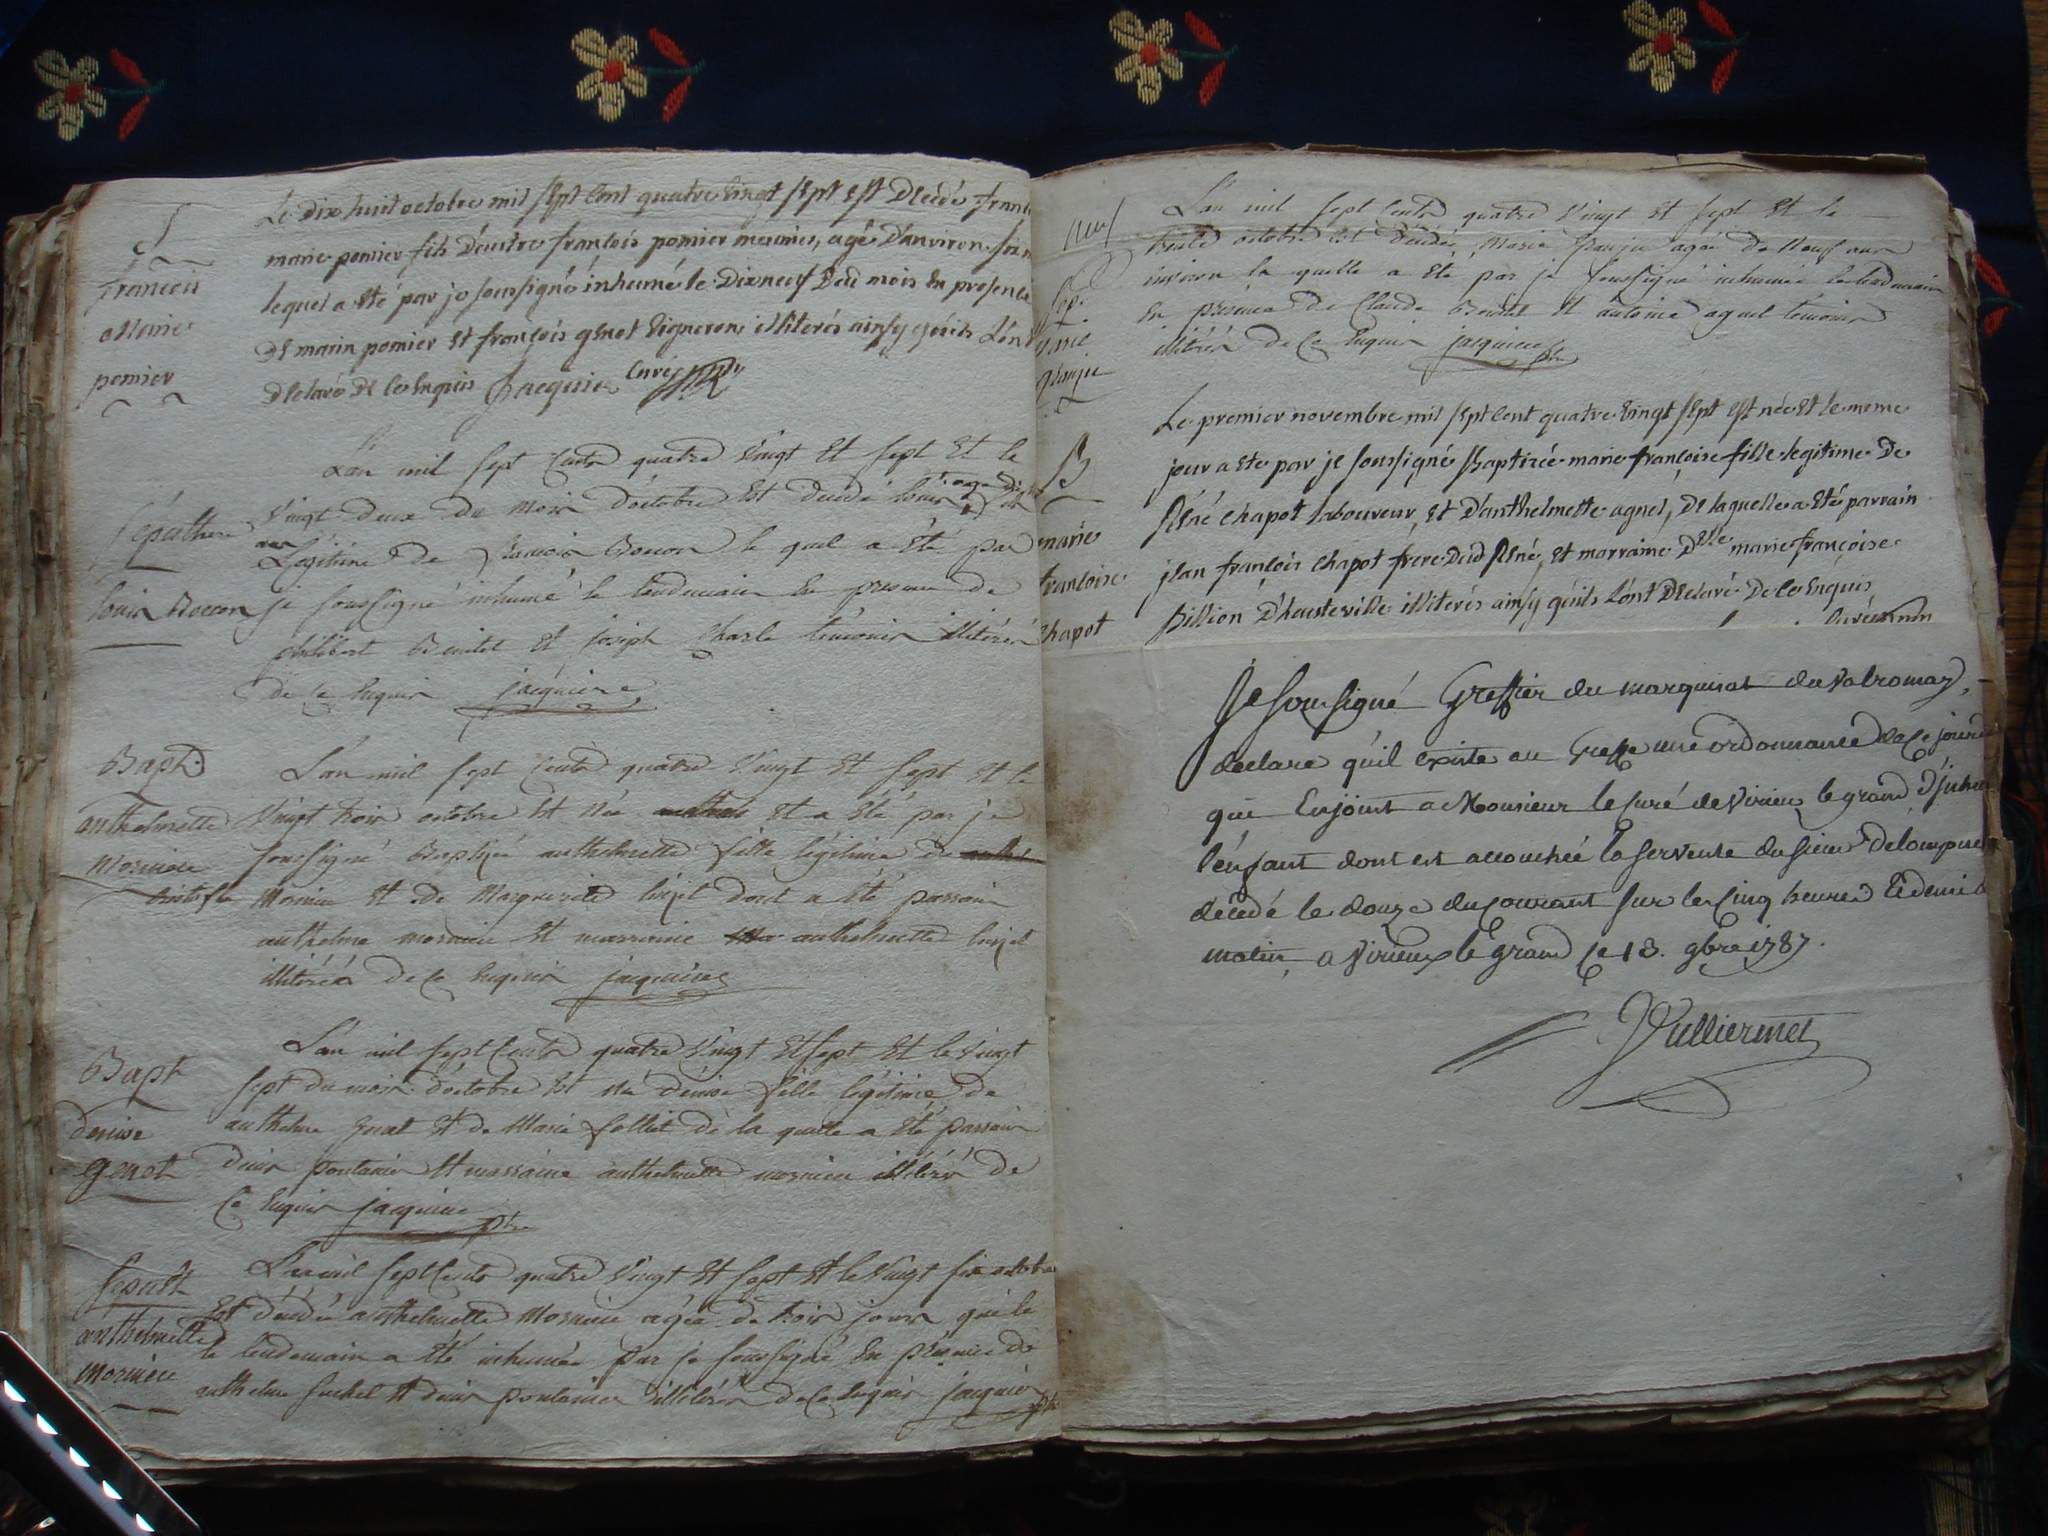 S
françois
Marie
pomier
Le dix huit octobre mil sept cent quatre vingt sept est décédé
marie pomier fils d'eustre françois pomier agé d'anviron
lequel a eté par je soussigné inhumé le dixneuf dud mois en presence
de marin pomier et françois genot vignerons illiterés ainsy qu'ils l'ont
declaré de ce enquis Jacquier curé
Sépulture
louis Bocon
L'an mil sept cents quatre vingt et sept et le
vingt deux du mois d'octobre est decedé louis fils
Légitime de françois Bocon le quel a été par
je soussigné inhumé le lendemain en presence de
philibert Benitet et joseph Charle témoins illitérés
de ce enquis jacquiere
Bapt.
anthelmette
Morniere
L'an mil sept cents quatre vingt et sept et le
vingt trois octobre est née et a été par je
soussigné Baptisée anthelmette fille légitime de
Morniere et de Marguerite dont a été parrain
anthelme morniere et marraine anthelmette
illitérés de ce enquis jacquiere
Bapt
denise
genot
L'an mil sept cents quatre vingt et sept et le vingt
sept du mois d'octobre est né dénise fille légitime de
anthelme genot et de Marie folliet de la quelle a été parrain
denis pontanier et marraine anthelmette morniere illitérés de
ce enquis jacquiere ptre
sepult
anthelmette
morniere
L'an mil sept cents quatre vingt et sept et le vingt six octobre
est décédée anthelmette Morniere agée de trois jours qui le
le lendemain a été inhumée par je soussigné en présence de
anthelme et denis pontanier illitérés de ce enquis jacquier ptre
neuf
Sep.
Marie
granju
L'an mil sept cents quatre vingt et sept et le
trente octobre est décédée Marie granju agée de neuf ans
environ la quelle a été par je soussigné inhumée le lendemain
en présence de Claude Benitet et antoine agnel témoins
illitérés de ce enquis jacquiere ptre
B
marie
françoise
chapot
Le premier novembre mil sept cent quatre vingt sept est née et le meme
jour a ete par je soussigné Baptisée marie françoise fille legitime de
Réné chapot laboureur, et d'anthelmette agnel, de laquelle a eté parrain
jean françois chapot frere dud Réné, et marraine Delle marie françoise
Billion d'hauteville illiterés ainsy qu'ils l'ont declaré de ce enquis
Je soussigné Greffier du marquisat du valromay,
declare qu'il existe au Greffe une ordonnance de ce jour
qui Enjoint a Monsieur le Curé de Virieu le grand d'inhu
l'enfant dont est accouchée la servente du sieur
décedé le douze du courant sur les cinq heures & demi
matin, a Virieux le grand ce 13. 9bre 1787.
Vulliermet